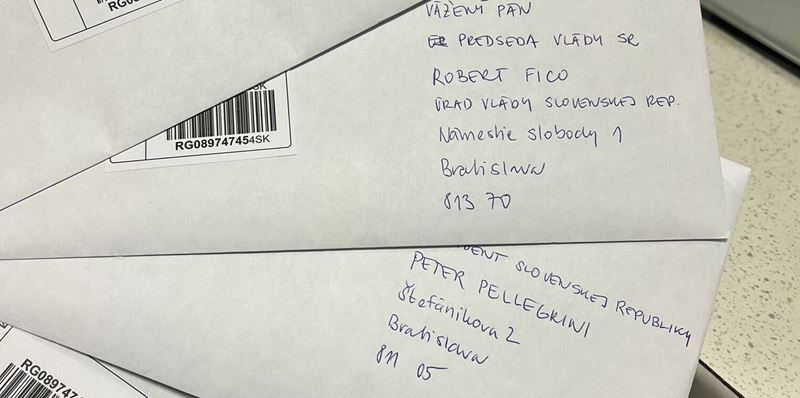 RG0
SK
RG089747454SK
VÁŽENÝ PÁN
PREDSEDA VLÁDY SR
ROBERT FICO
ÚRAD VLÁDY SLOVENSKEJ REP.
Námestie slobody 1
Bratislava
813 70
DENT SLOVENSKEJ REPUBLIKY
PETER PELLEGRINI
Štefánikova 2
Bratislava
811 05
RG08974745